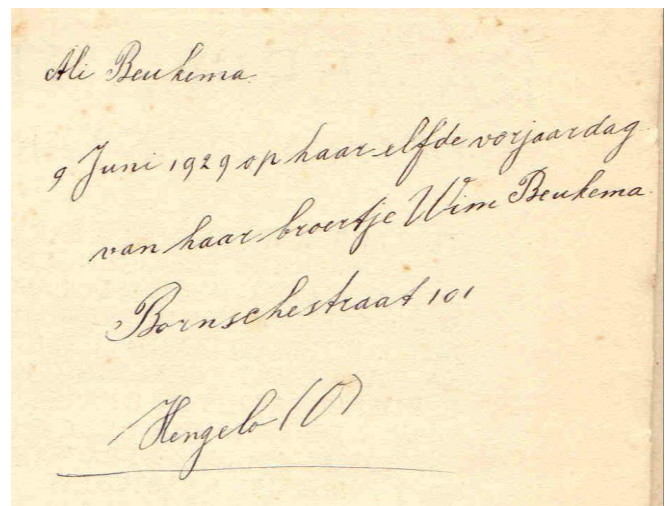 Ali Beukema.
9 Juni 1929 op haar elfde verjaardag
van haar broertje Wim Beukema.
Bornschestraat 101
Hengelo (O)